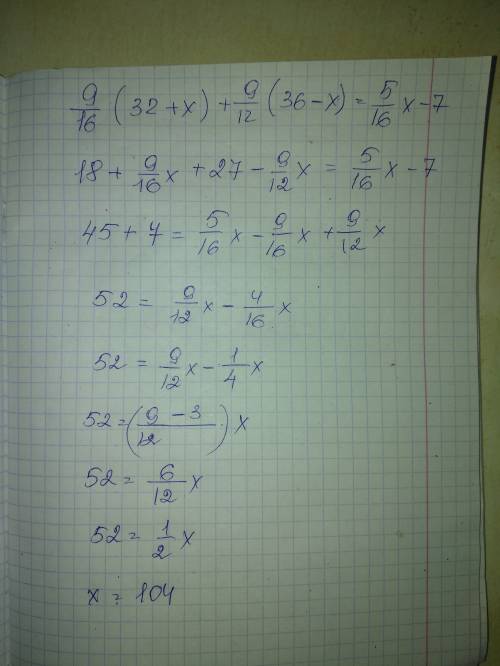 9/16 (32+x) + 9/12 (36-x) = 5/16 x - 7
18 + 9/16 x + 27 - 9/12 x = 5/16 x - 7
45 + 7 = 5/16 x - 9/16 x + 9/12 x
52 = 9/12 x - 4/16 x
52 = 9/12 x - 1/4 x
52 = (9-3/12) x
52 = 6/12 x
52 = 1/2 x
x = 104